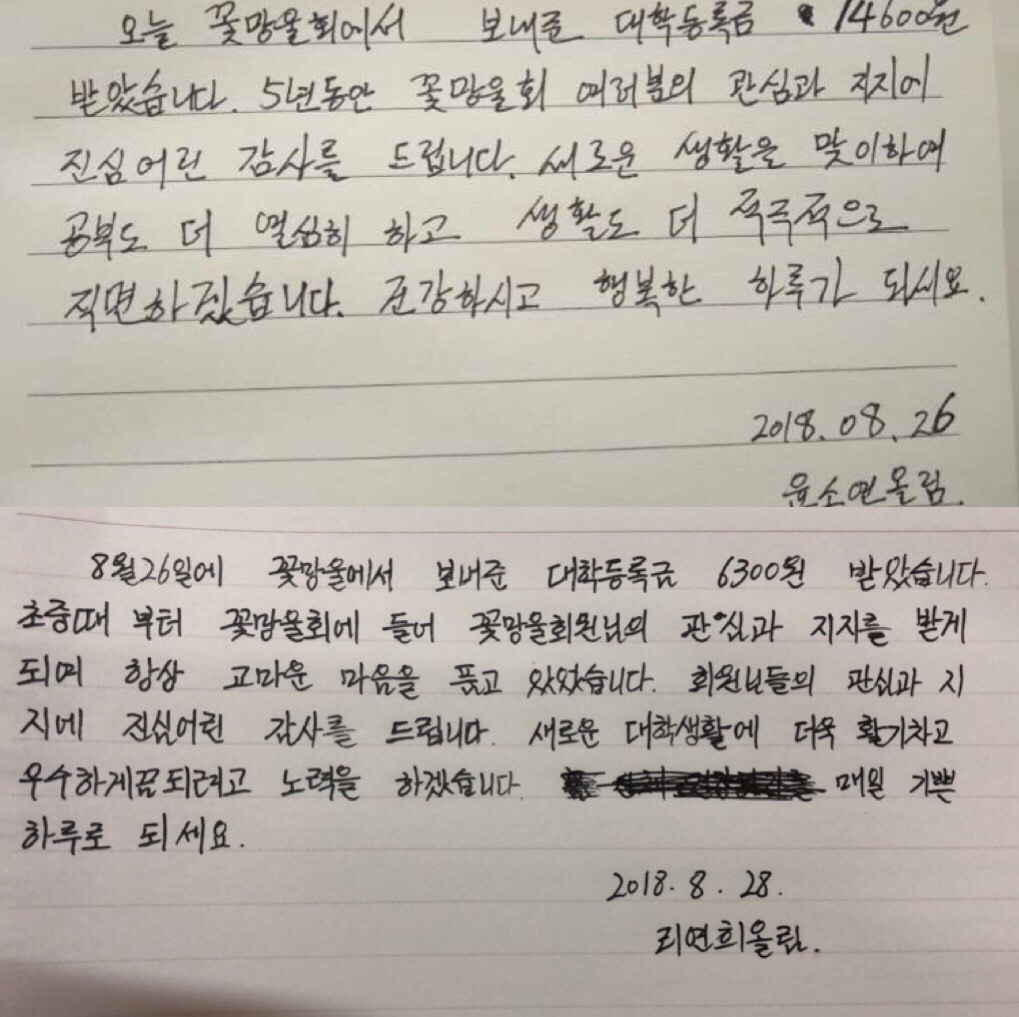 오늘 꽃망울회에서 보내준 대학등록금 14600원
받았습니다. 5년동안 꽃망울회 여러분의 관심과 지지에
진심어린 감사를 드립니다. 새로운 생활을 맞이하여
공부도 더 열심히 하고 생활도 더 적극적으로
직면하겠습니다. 건강하시고 행복한 하루가 되세요.
2018.08.26
윤소연올림.
8월26일에 꽃망울에서 보내준 대학등록금 6300원 받았습니다.
초중때 부터 꽃망울회에 들어 꽃망울회원님의 관심과 지지를 받게
되며 항상 고마운 마음을 품고 있었습니다. 회원님들의 관심과 지
지에 진심어린 감사를 드립니다. 새로운 대학생활에 더욱 활기차고
우수하게끔되려고 노력을 하겠습니다. 매일 기쁜
하루로 되세요.
2018.8.28.
리연희올림.